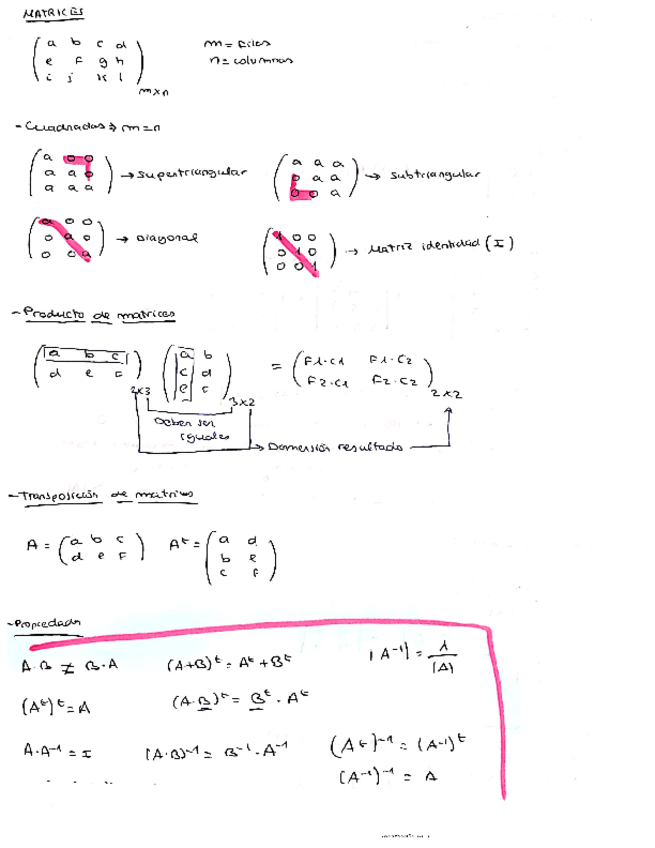 MATRICES
(a b c d
e f g h
i j k l) mxn
m = filas
n = columnas
- Cuadradas → m = n
(a 0 0
a a 0
a a a) → supertriangular
(a a a
0 a a
0 0 a) → subtriangular
(a 0 0
0 a 0
0 0 a) → Diagonal
(1 0 0
0 1 0
0 0 1) → Matriz identidad (I)
- Producto de matrices
(a b c
d e f) 2x3
(a b
c d
e f) 3x2
= (F1·C1 F1·C2
F2·C1 F2·C2) 2x2
Deben ser
iguales
→ Dimensión resultado
- Transposición de matrices
A = (a b c
d e f)
At = (a d
b e
c f)
- Propiedades
A·B ≠ B·A
(A+B)t = At + Bt
|A-1| = 1/|A|
(At)t = A
(A·B)t = Bt · At
A·A-1 = I
(A·B)-1 = B-1·A-1
(At)-1 = (A-1)t
(A-1)-1 = A